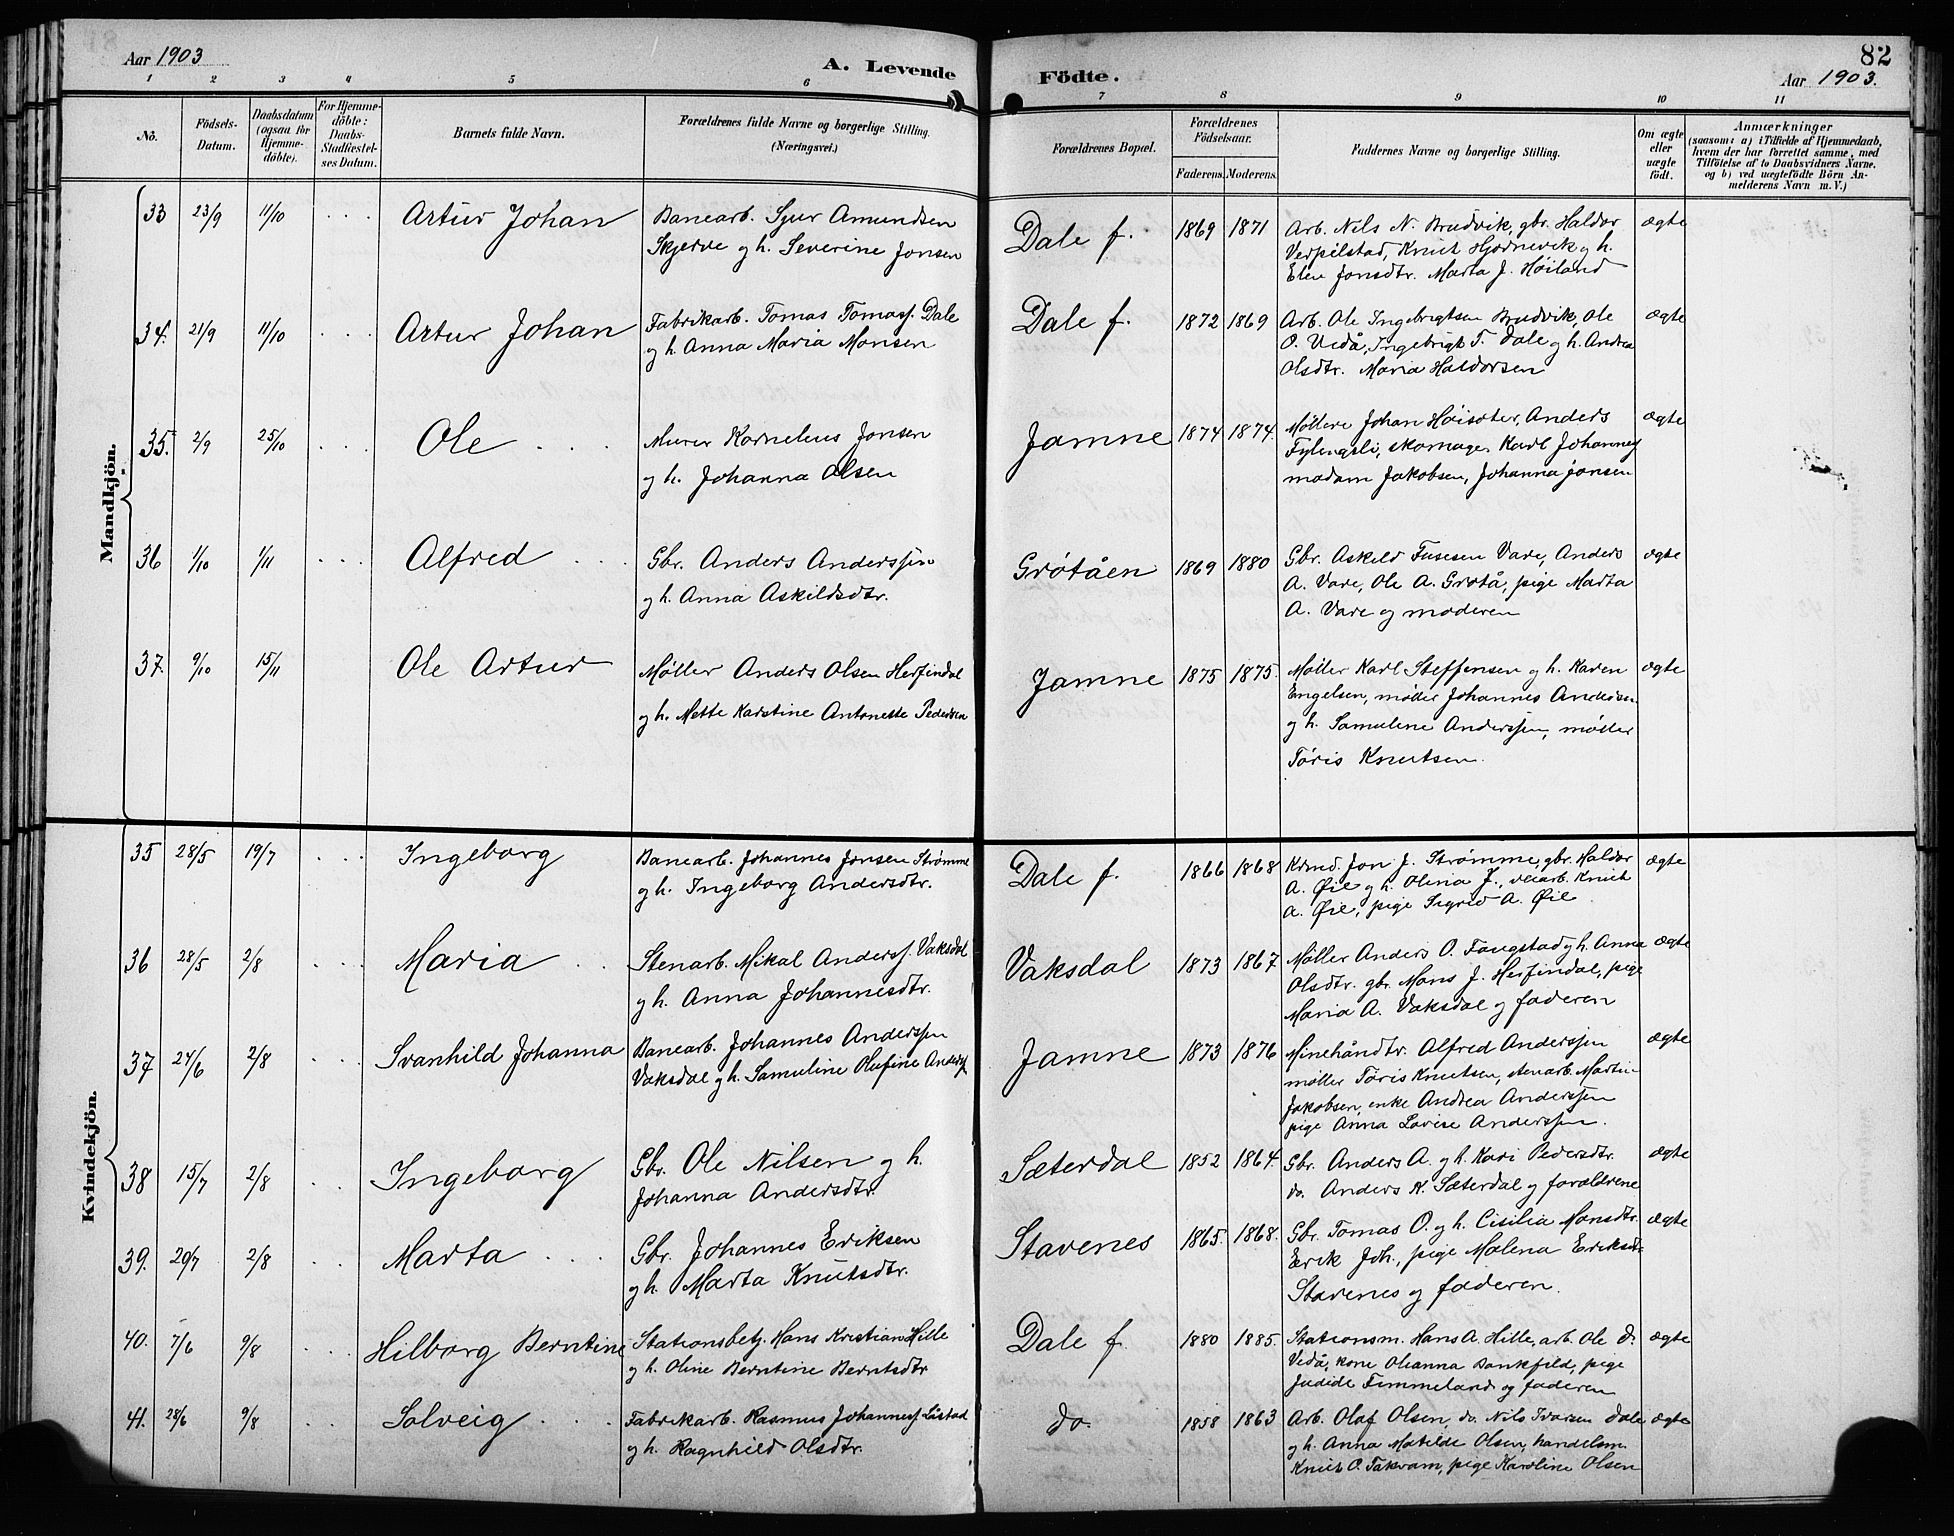 Aar 1903
A. Levende
Födte.
82
Aar 1903.
1 2 3 4 5 6 7 8 9 10 11
No.
Födsels-Datum.
Daabsdatum (ogsaa for Hjemmedöbte).
For Hjemmedöbte: Daabs-Stadfæstelses Datum.
Barnets fulde Navn.
Forældrenes fulde Navne og borgerlige Stilling.
(Næringsvei.)
Forældrenes Bopæl.
Forældrenes Födselsaar.
Faderens. Moderens.
Faddernes Navne og borgerlige Stilling.
Om ægte eller uægte födt.
Anmærkninger
(saasom: a) i Tilfælde af Hjemmedaab,
hvem der har forrettet samme, med
Tilföielse af to Daabsvidners Navne.
og b) ved uægtefödte Börn An-
melderens Navn m. V.)
Mandkjön.
33 23/9 11/10 Artur Johan
Banearb. Sjur Amundsen
Skjerve og h. Severine Jonsen
Dale f. 1869 1871
Arb. Nils N. Brudvik, gbr. Haldor
Verpilstad, Knut Hjørnevik og h.
Elen Jonsdtr. Marta J. Høiland
ægte
34. 21/9 11/10 Artur Johan
Fabrikarb. Tomas Tomass. Dale
og h. Anna Maria Monsen
Dale f. 1872 1869
Arb. Ole Ingebrigtsen Brudvik, Ole
O. Vedå, Ingebrigt T. Dale og h. Andrea
Olsdtr. Maria Haldorsen
ægte
35. 2/9 25/10 Ole
Murer Kornelius Jonsen
og h. Johanna Olsen
Jamne 1874 1874.
Møllere Johan Høisæter, Anders
Fylingsli, skomager Karl Johannes
madam Jakobsen, Johanna Jonsen
ægte
36 1/10 1/11 Alfred
Gbr. Anders Anderssen
og h. Anna Askildsdtr.
Grøtåen 1869 1880
Gbr. Askild Fusesen Vare, Anders
A. Vare, Ole A. Grøtå, pige Marta
A. Vare og moderen
ægte
37. 9/10 15/11 Ole Artur
Møller Anders Olsen Herfindal
og h. Mette Karstine Antonette Pedersen
Jamne 1875 1875.
Møller Karl Steffensen og h. Karen
Engelsen, møller Johannes Andersen
og h. Samuline Anderssen, møller
Tøris Knutsen.
ægte
Kvindekjön.
35 28/5 19/7 Ingeborg
Banearb. Johannes Jonsen Strømme
og h. Ingeborg Andersdtr.
Dale f. 1866 1868
Kdmd. Jon J. Strømme, gbr. Haldor
A. Øie og h. Olina J., veiarb. Knut
A. Øie, pige Sigrid A. Øie
ægte
36 28/5 2/8 Maria
Stenarb. Mikal Anderss. Vaksdal
og h. Anna Johannesdtr.
Vaksdal 1873 1867.
Møller Anders O. Fangstad og h. Anna
Olsdtr. gbr. Mons J. Herfindal, pige
Maria A. Vaksdal og faderen
ægte
37 24/6 2/8 Svanhild Johanna
Banearb. Johannes Anderssen
Vaksdal og h. Samuline Olufine Anderss.
Jamne 1873 1876
Minehåndtr. Alfred Anderssen
møller Tøris Knutsen, stenarb. Martin
Jakobsen, enke Andrea Anderssen
pige Anna Lovise Anderssen.
ægte
38 15/7 2/8 Ingeborg
Gbr. Ole Nilsen og h.
Johanna Andersdtr.
Sæterdal 1852 1864.
Gbr. Anders A. og h. Kari Pedersdtr.
do. Anders K. Sæterdal og forældrene
ægte
39. 20/7 2/8 Marta
Gbr. Johannes Eriksen
og h. Marta Knutsdtr.
Stavenes 1865. 1868.
Gbr. Tomas O. og h. Cisilia Monsdtr.
Erik Joh., pige Malena Eriksdtr.
Stavenes og faderen.
ægte
40. 7/6 9/8 Hilborg Berntine
Stationsbetj. Hans Kristian Hille
og h. Oline Berntine Berntsdtr
Dale f. 1880 1885.
Stationsm. Hans A. Hille, arb. Ole O.
Vedå, kone Oleanna Dankfild, pige
Judide Fimmeland og faderen
ægte
41. 28/6 9/8 Solveig
Fabrikarb. Rasmus Johanness. Listad
og h. Ragnhild Olsdtr.
do. 1858 1863
Arb. Olaf Olsen, do. Nils Ivarsen Dale
og h. Anna Matilde Olsen, handelsm.
Knut O. Takvam, pige Karoline Olsen
ægte